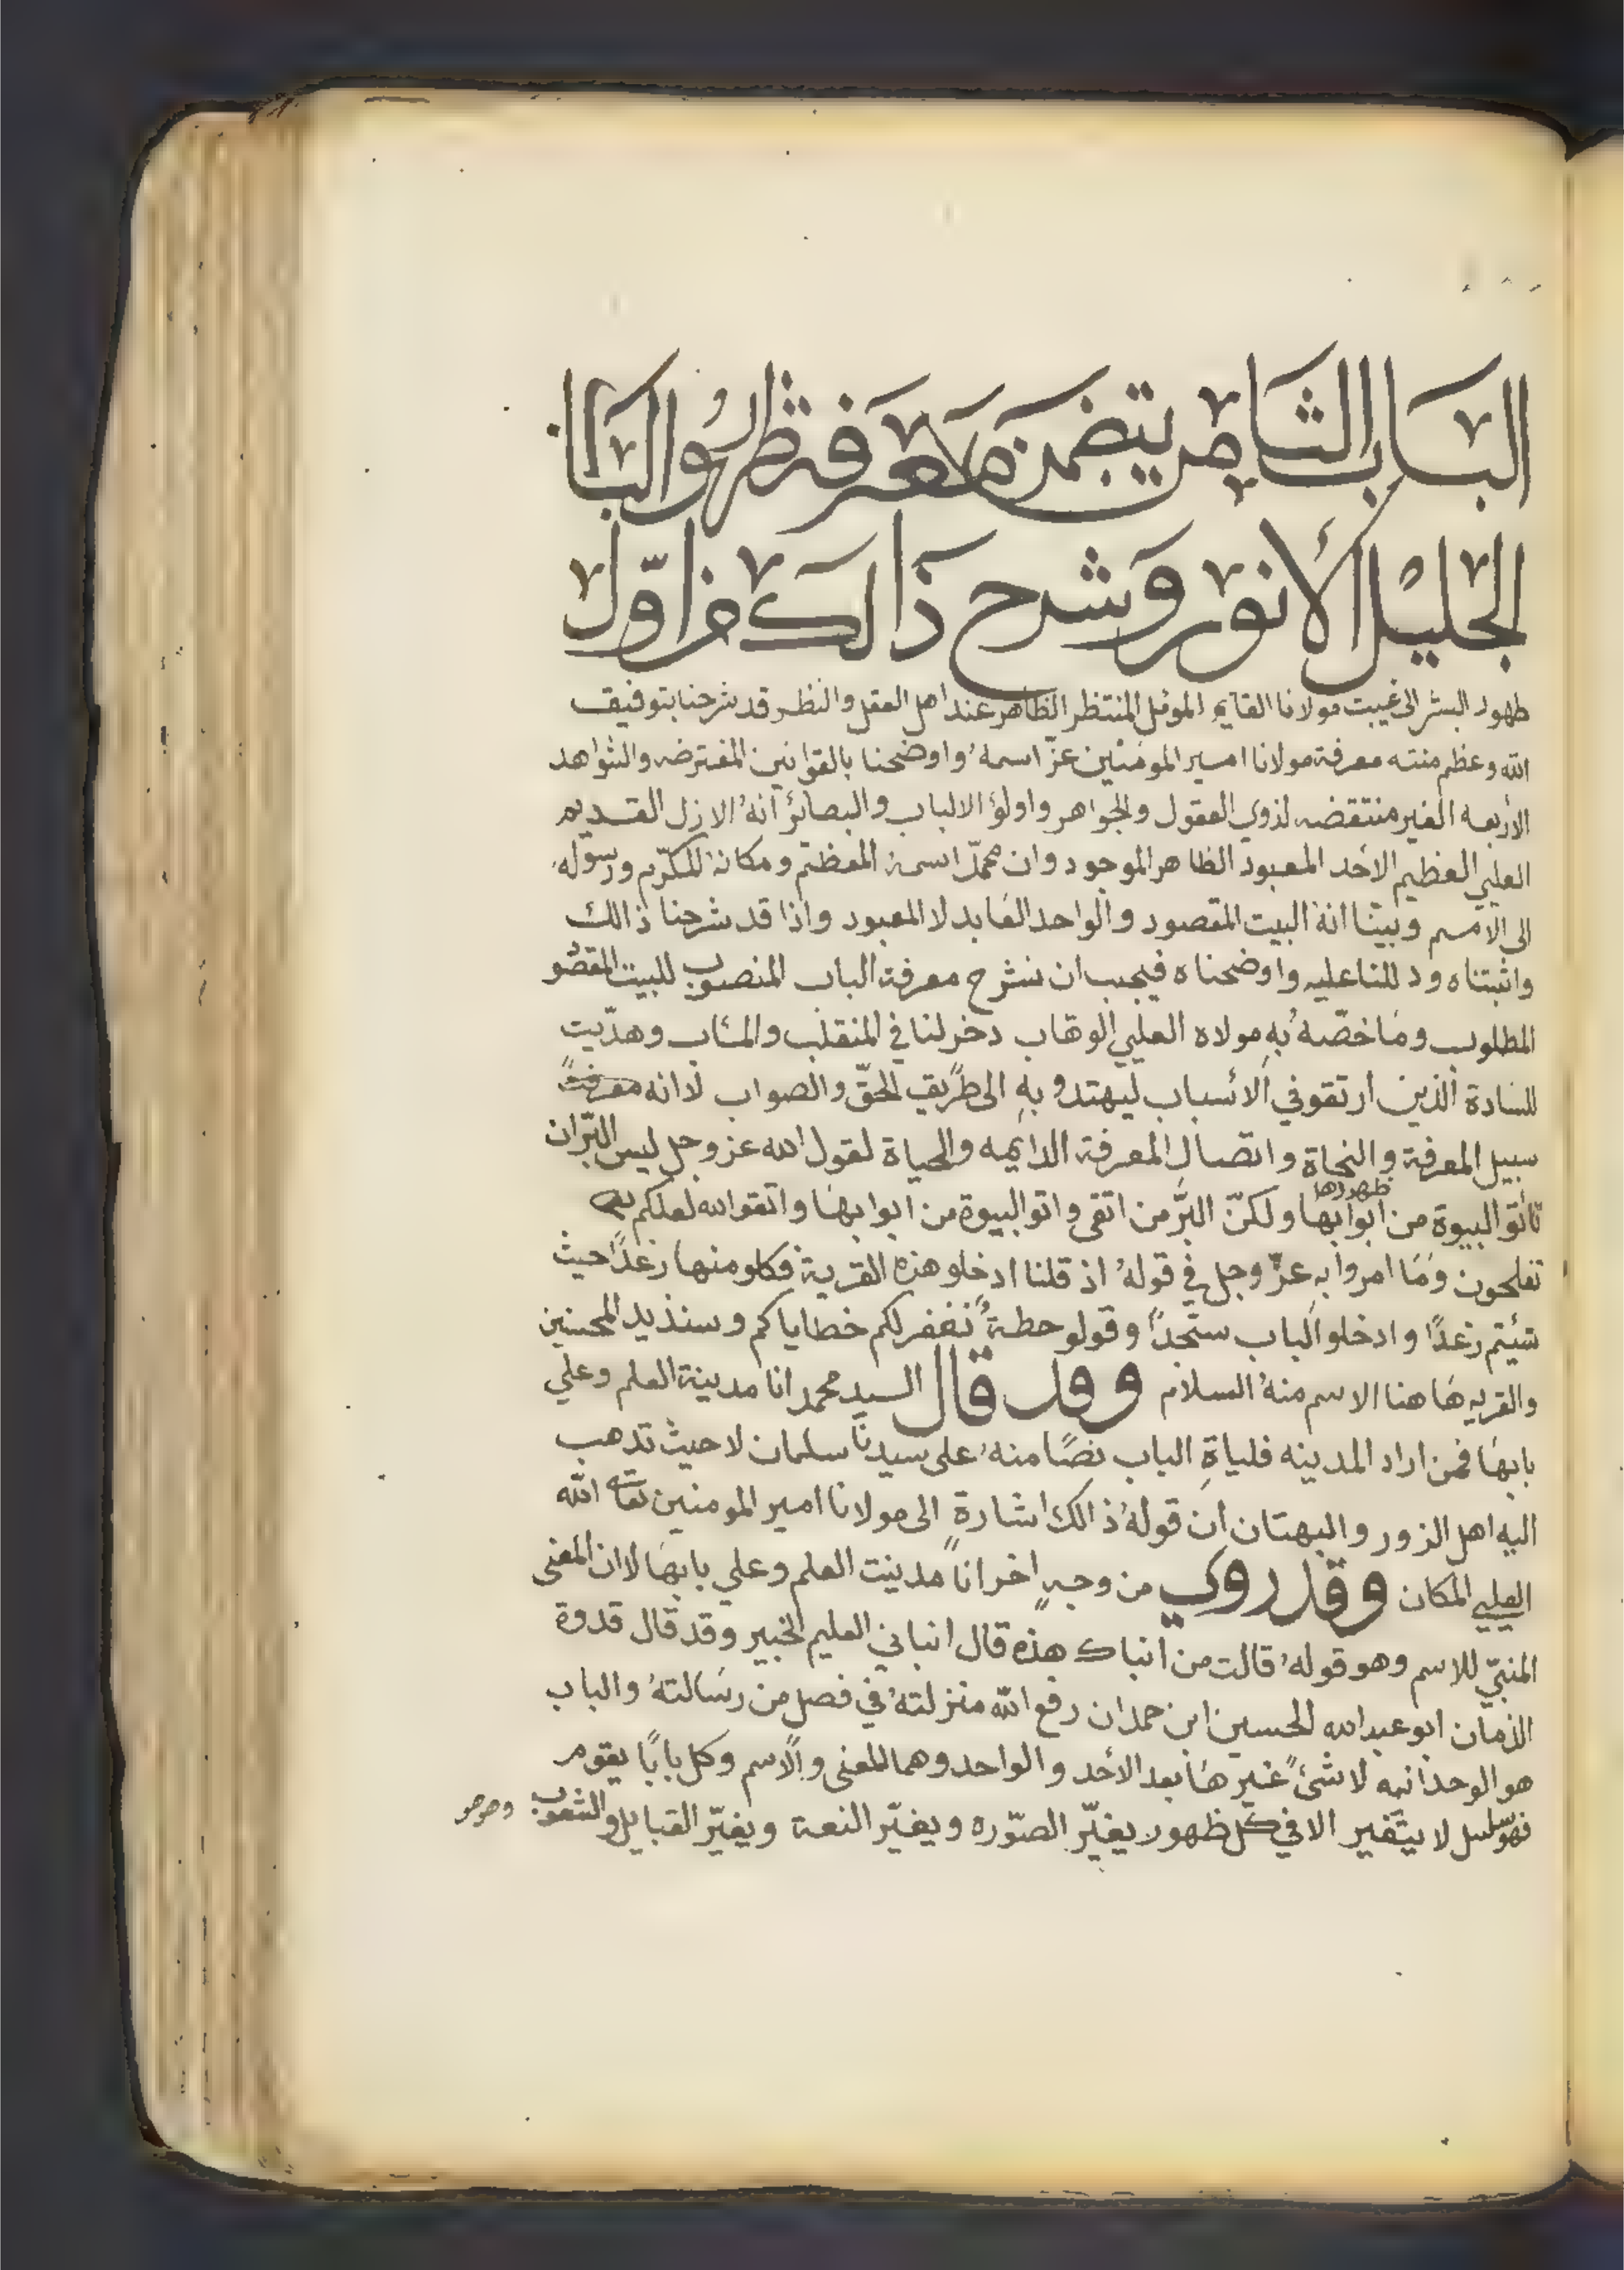 الباب الثامن يتضمن معرفة ظهور الباب
الجليل الأنور وشرح ذالك من اوّل
ظهور البشر الى غيبت مولانا القايم الموئمل المنتظر الظاهر عند اهل العقل والنظر قد شرحنا بتوفيق
الله وعظم منته معرفة مولانا امير المومنين عزّ اسمهُ واوضحنا بالقوانين المفترضه والشواهد
الأربعه الغير منتقضه لذوي العقول والجواهر واولؤ الالباب والبصائر انهُ الازل القديم
العلي العظيم الاحد المعبود الظاهر الموجود وان محمدّ اسمهُ المعظم ومكانهُ المكرّم ورسوله
الى الامم وبيّنا انهُ البيت المقصود والواحد العابد لا المعبود واذا قد شرحنا ذالك
واثبتناه ودللنا عليه واوضحناه فيجب ان نشرح معرفة الباب المنصوب للبيت المقصو
المطلوب وما خصّه به مولاه العلي الوهاب دخر لنا في المنقلب والمئاب وهدّيت
للسادة الذين ارتقو في الأسباب ليهتدو بهِ الى طريق الحقّ والصواب لانه معرفتهُ
سبيل المعرفة والنجاة واتصال المعرفة الدايمه والحياة لقول الله عز وجل ليس البرّ ان
تأتو البيوة من ابوابها ظهورها ولكنّ البرّ من اتقى واتو البيوة من ابوابها واتقو الله لعلكم
تفلحون وما امروا به عزّ وجل في قولهُ اذ قلنا ادخلو هذه القرية فكلو منها رغدًا حيث
شيئتم رغدًا وادخلو الباب سجّدًا وقولو حطةُ نغفر لكم خطاياكم وسنذيد المحسنين
والقريه هاهنا الاسم منهُ السلام وقد قال السيد محمد انا مدينة العلم وعلي
بابها فمن اراد المدينه فلياةِ الباب نصًا منهُ على سيدنا سلمان لا حيث تدهب
اليه اهل الزور والبهتان ان قولهُ ذالك اشارة الى مولانا امير المومنين الله
العلي المكان وقد روي من وجهٍ اخر اناّ مدينت العلم وعلي بابها لان المعنى
المنبّي للاسم وهو قولهُ قالت من انباك هذه قال انباني العليم الخبير وقد قال قدوة
الزمان ابو عبد الله الحسين ابن حمدان رفع الله منزلتهُ في فصل من رسالتهُ والباب
هو الوحدانيه لا شئً غيرها بعد الأحد والواحد وهما المعنى والاسم وكل بابًا يقوم
فهو سلسل لا يتغير الا في كل ظهور يغيّر الصّوره ويغيّر النعة ويغيّر القبايل والشعوب وهو هو